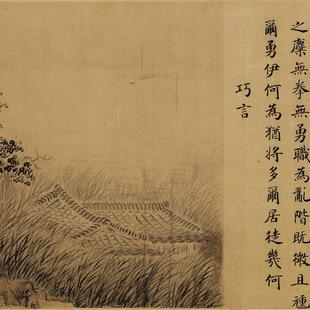 之麋無拳無勇職為亂階既微且尰
爾勇伊何為猶將多爾居徒幾何
巧言